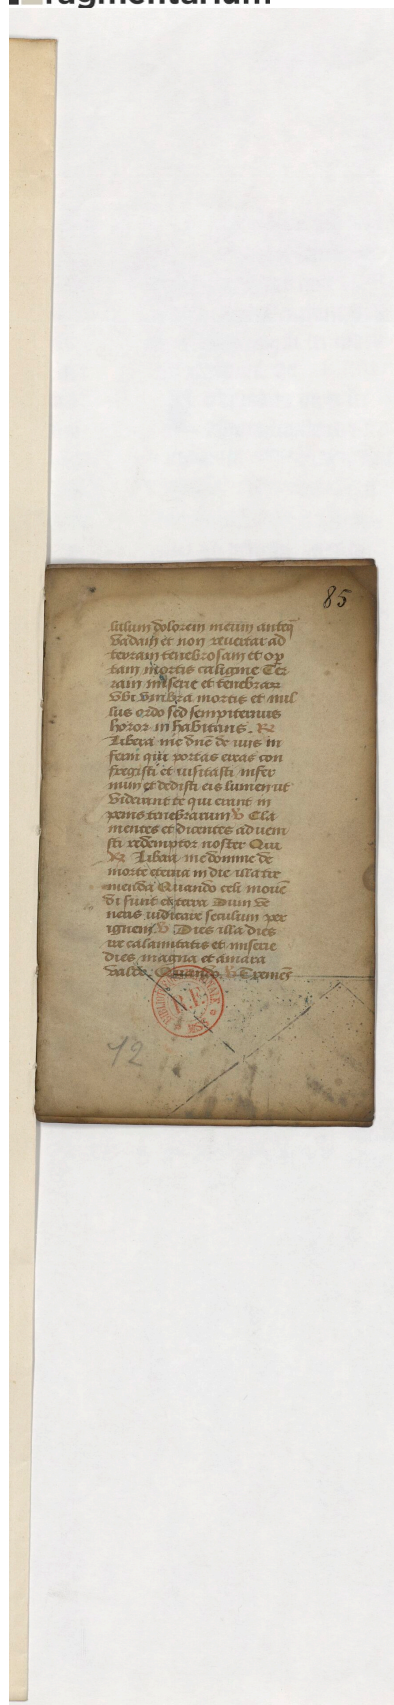 fragmentarium
85
lulum dolorem meum anteq̄
vadam et non reuertar ad
terram tenebrosam et op
tam mortis caligine Ter
ram miserie et tenebrar
vbi vmbra mortis et nul
lus ordo sed sempiternus
horor in habitans. R
Libera me dn̄e de viis in
ferni qui portas ereas con
fregisti et visitasti infer
num et dedisti eis lumen ut
viderent te qui erant in
penis tenebrarum v Cla
mentes et dicentes adueni
sti redemptor noster Qui
R Libera me domine de
morte eterna in die illa tre
menda Quando celi mouē
di sunt et terra Dum vē
neris iudicare seculum per
ignem. v Dies illa dies
ire calamitatis et miserie
dies magna et amara
valde. Quando. v Tremēs
BIBLIOTHEQUE NATIONALE
R.F.
MSS
12